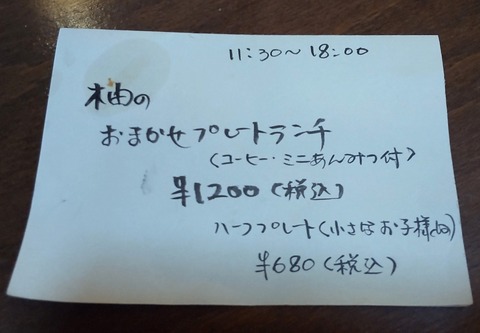 11:30〜18:00
柚の
おまかせプレートランチ
(コーヒー・ミニあんみつ付)
¥1200(税込)
ハーフプレート(小さなお子様のみ)
¥680(税込)